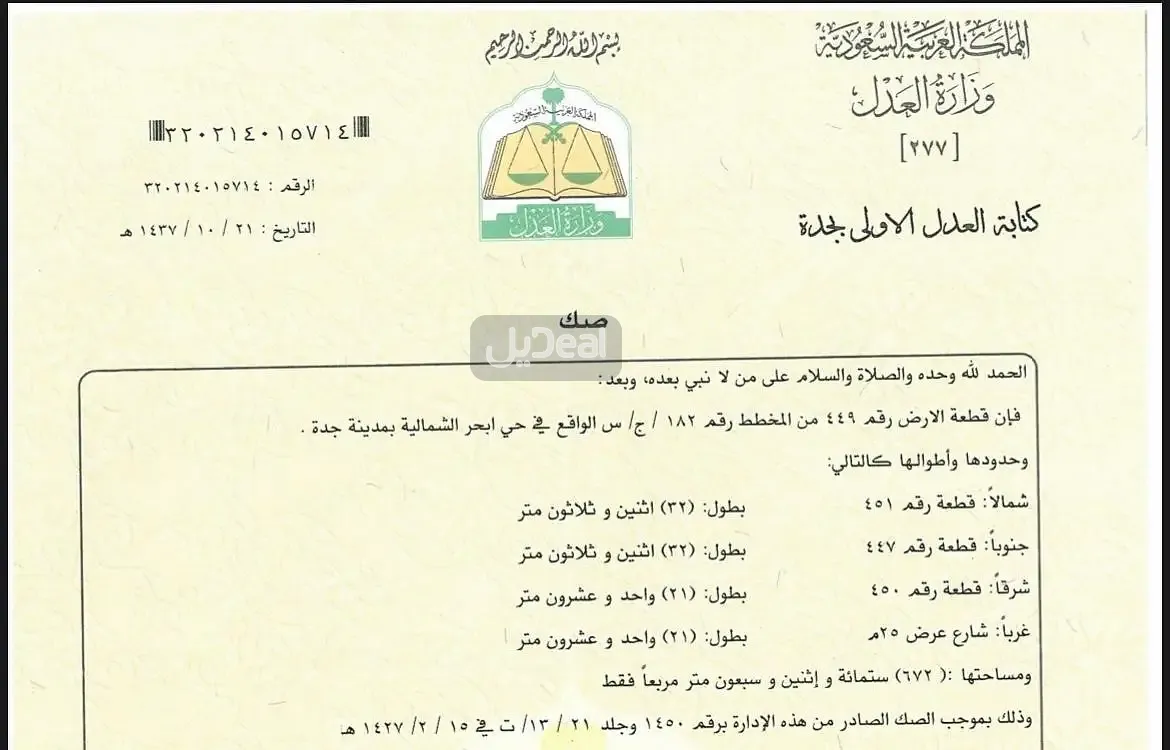 المملكة العربية السعودية
وزارة العدل
[٢٧٧]
كتابة العدل الاولى بجدة
بسم الله الرحمن الرحيم
المملكة العربية السعودية
وزارة العدل
٣٢٠٢١٤٠١٥٧١٤
الرقم : ٣٢٠٢١٤٠١٥٧١٤
التاريخ : ٢١ / ١٠ / ١٤٣٧ هـ
صك
ديل Deal
الحمد لله وحده والصلاة والسلام على من لا نبي بعده، وبعد:
فإن قطعة الارض رقم ٤٤٩ من المخطط رقم ١٨٢ / ج/ س الواقع في حي ابحر الشمالية بمدينة جدة .
وحدودها وأطوالها كالتالي:
شمالاً: قطعة رقم ٤٥١ بطول: (٣٢) اثنين و ثلاثون متر
جنوباً: قطعة رقم ٤٤٧ بطول: (٣٢) اثنين و ثلاثون متر
شرقاً: قطعة رقم ٤٥٠ بطول: (٢١) واحد و عشرون متر
غرباً: شارع عرض ٢٥م بطول: (٢١) واحد و عشرون متر
ومساحتها :( ٦٧٢) ستمائة و إثنين و سبعون متر مربعاً فقط
وذلك بموجب الصك الصادر من هذه الإدارة برقم ١٤٥٠ وجلد ٢١ / ١٣/ ت في ١٥ / ٢/ ١٤٢٧ هـ